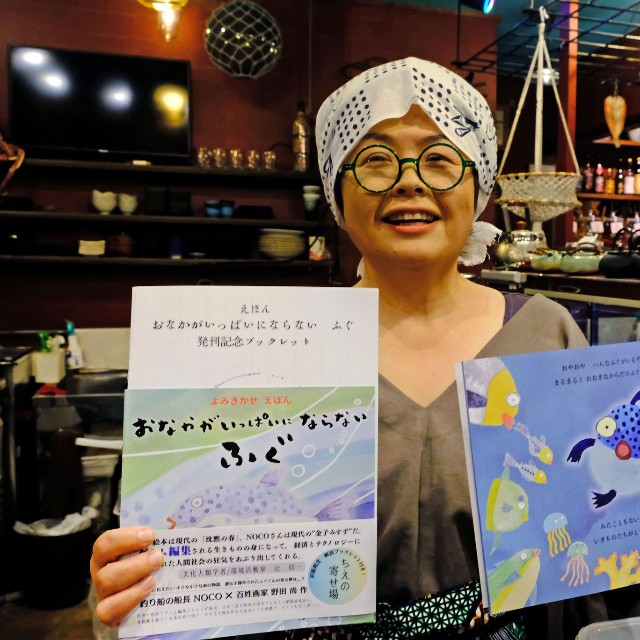 えほん
おなかがいっぱいにならない　ふぐ
発刊記念ブックレット
よみきかせ えほん
おなかがいっぱいにならない
ふぐ
絵本は現代の「沈黙の春」、NOCOさんは現代の"金子みすゞ"だ。
編集される生きものの身になって、経済とテクノロジーに
れた人間社会の狂気をあぶり出してくれる。
文化人類学者／環境活動家　辻 信一
釣り船の船長 NOCO × 百姓画家 野田 尚 作
ちえの
寄せ場
おやおや　へんなふぐがいる
まるまると おおきなからだのふぐ
みたこともない
いきものたちが